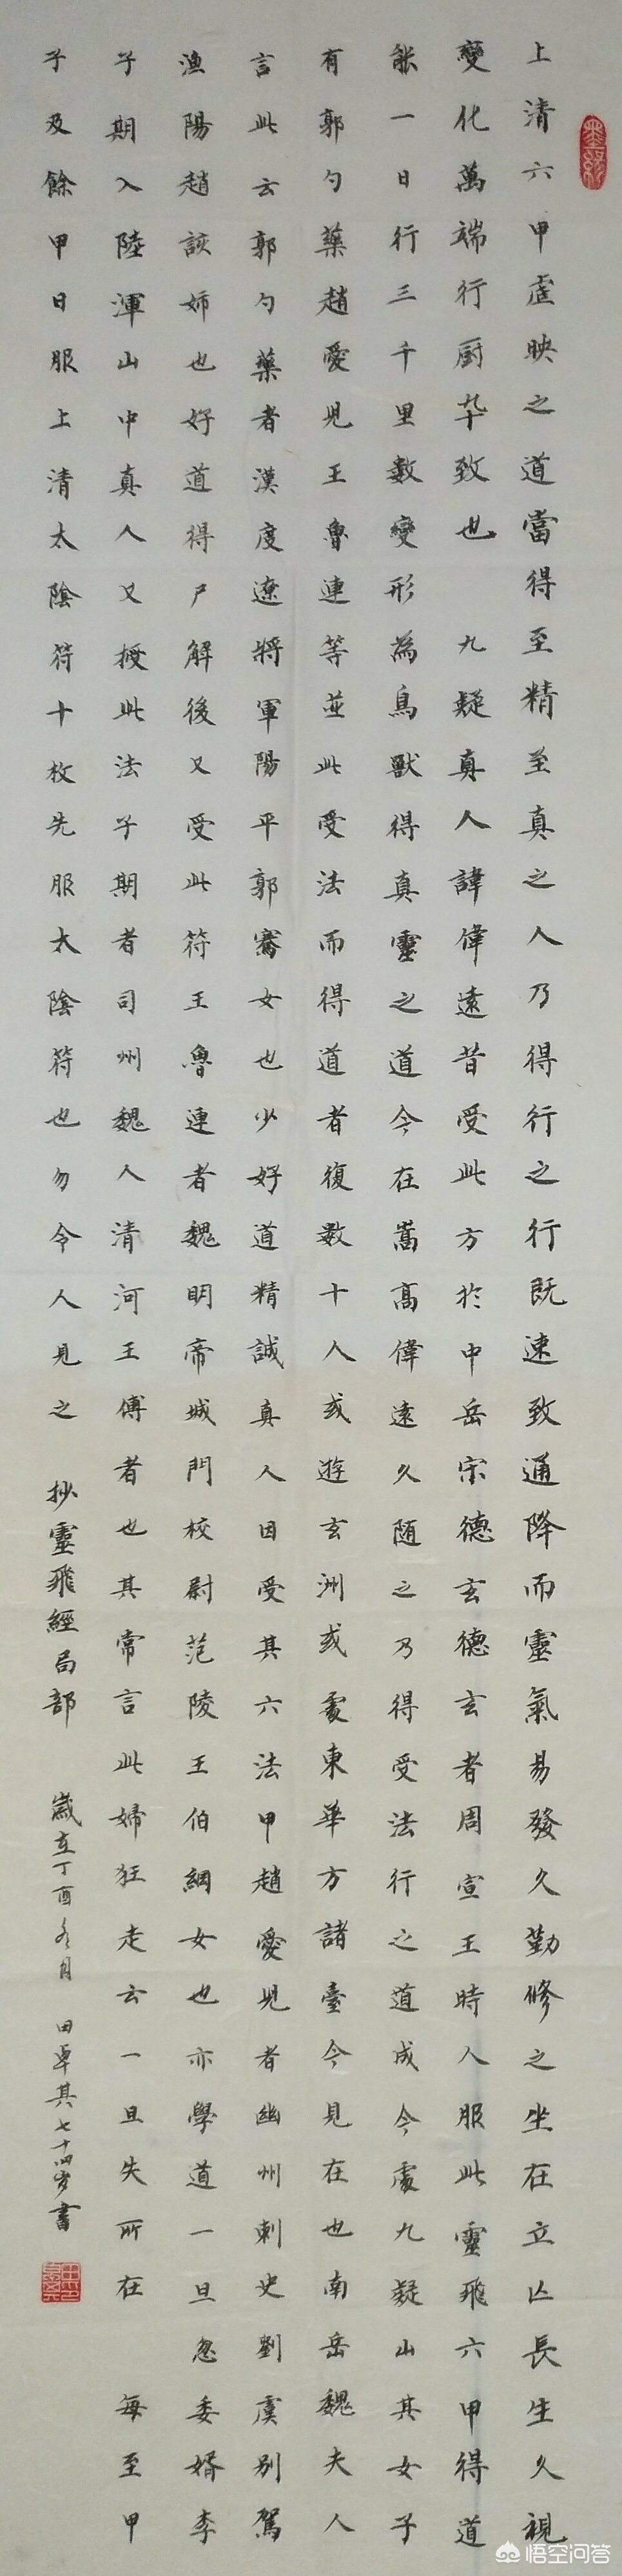 上清六甲虛映之道當得至精至真之人乃得行之行既速致通降而靈氣易發久勤修之坐在立亡長生久視
變化萬端行厨卒致也 九疑真人諱偉遠昔受此方於中岳宋德玄德玄者周宣王時人服此靈飛六甲得道
能一日行三千里數變形為鳥獸得真靈之道今在嵩高偉遠久随之乃得受法行之道成今處九疑山其女子
有郭勺藥趙愛兒王魯連等並此受法而得道者復數十人或遊玄洲或處東華方諸臺今見在也南岳魏夫人
言此云郭勺藥者漢度遼將軍陽平郭騫女也少好道精誠真人因受其六法甲趙愛兒者幽州刺史劉虞別駕
漁陽趙該姉也好道得尸解後又受此符王魯連者魏明帝城門校尉范陵王伯綱女也亦學道一旦忽委婿李
子期入陸渾山中真人又授此法子期者司州魏人清河王傅者也其常言此婦狂走云一旦失所在 每至甲
子及餘甲日服上清太陰符十枚先服太陰符也勿令人見之 抄靈飛經局部 歲在丁酉冬月 田卓其七十四岁書
悟空问答